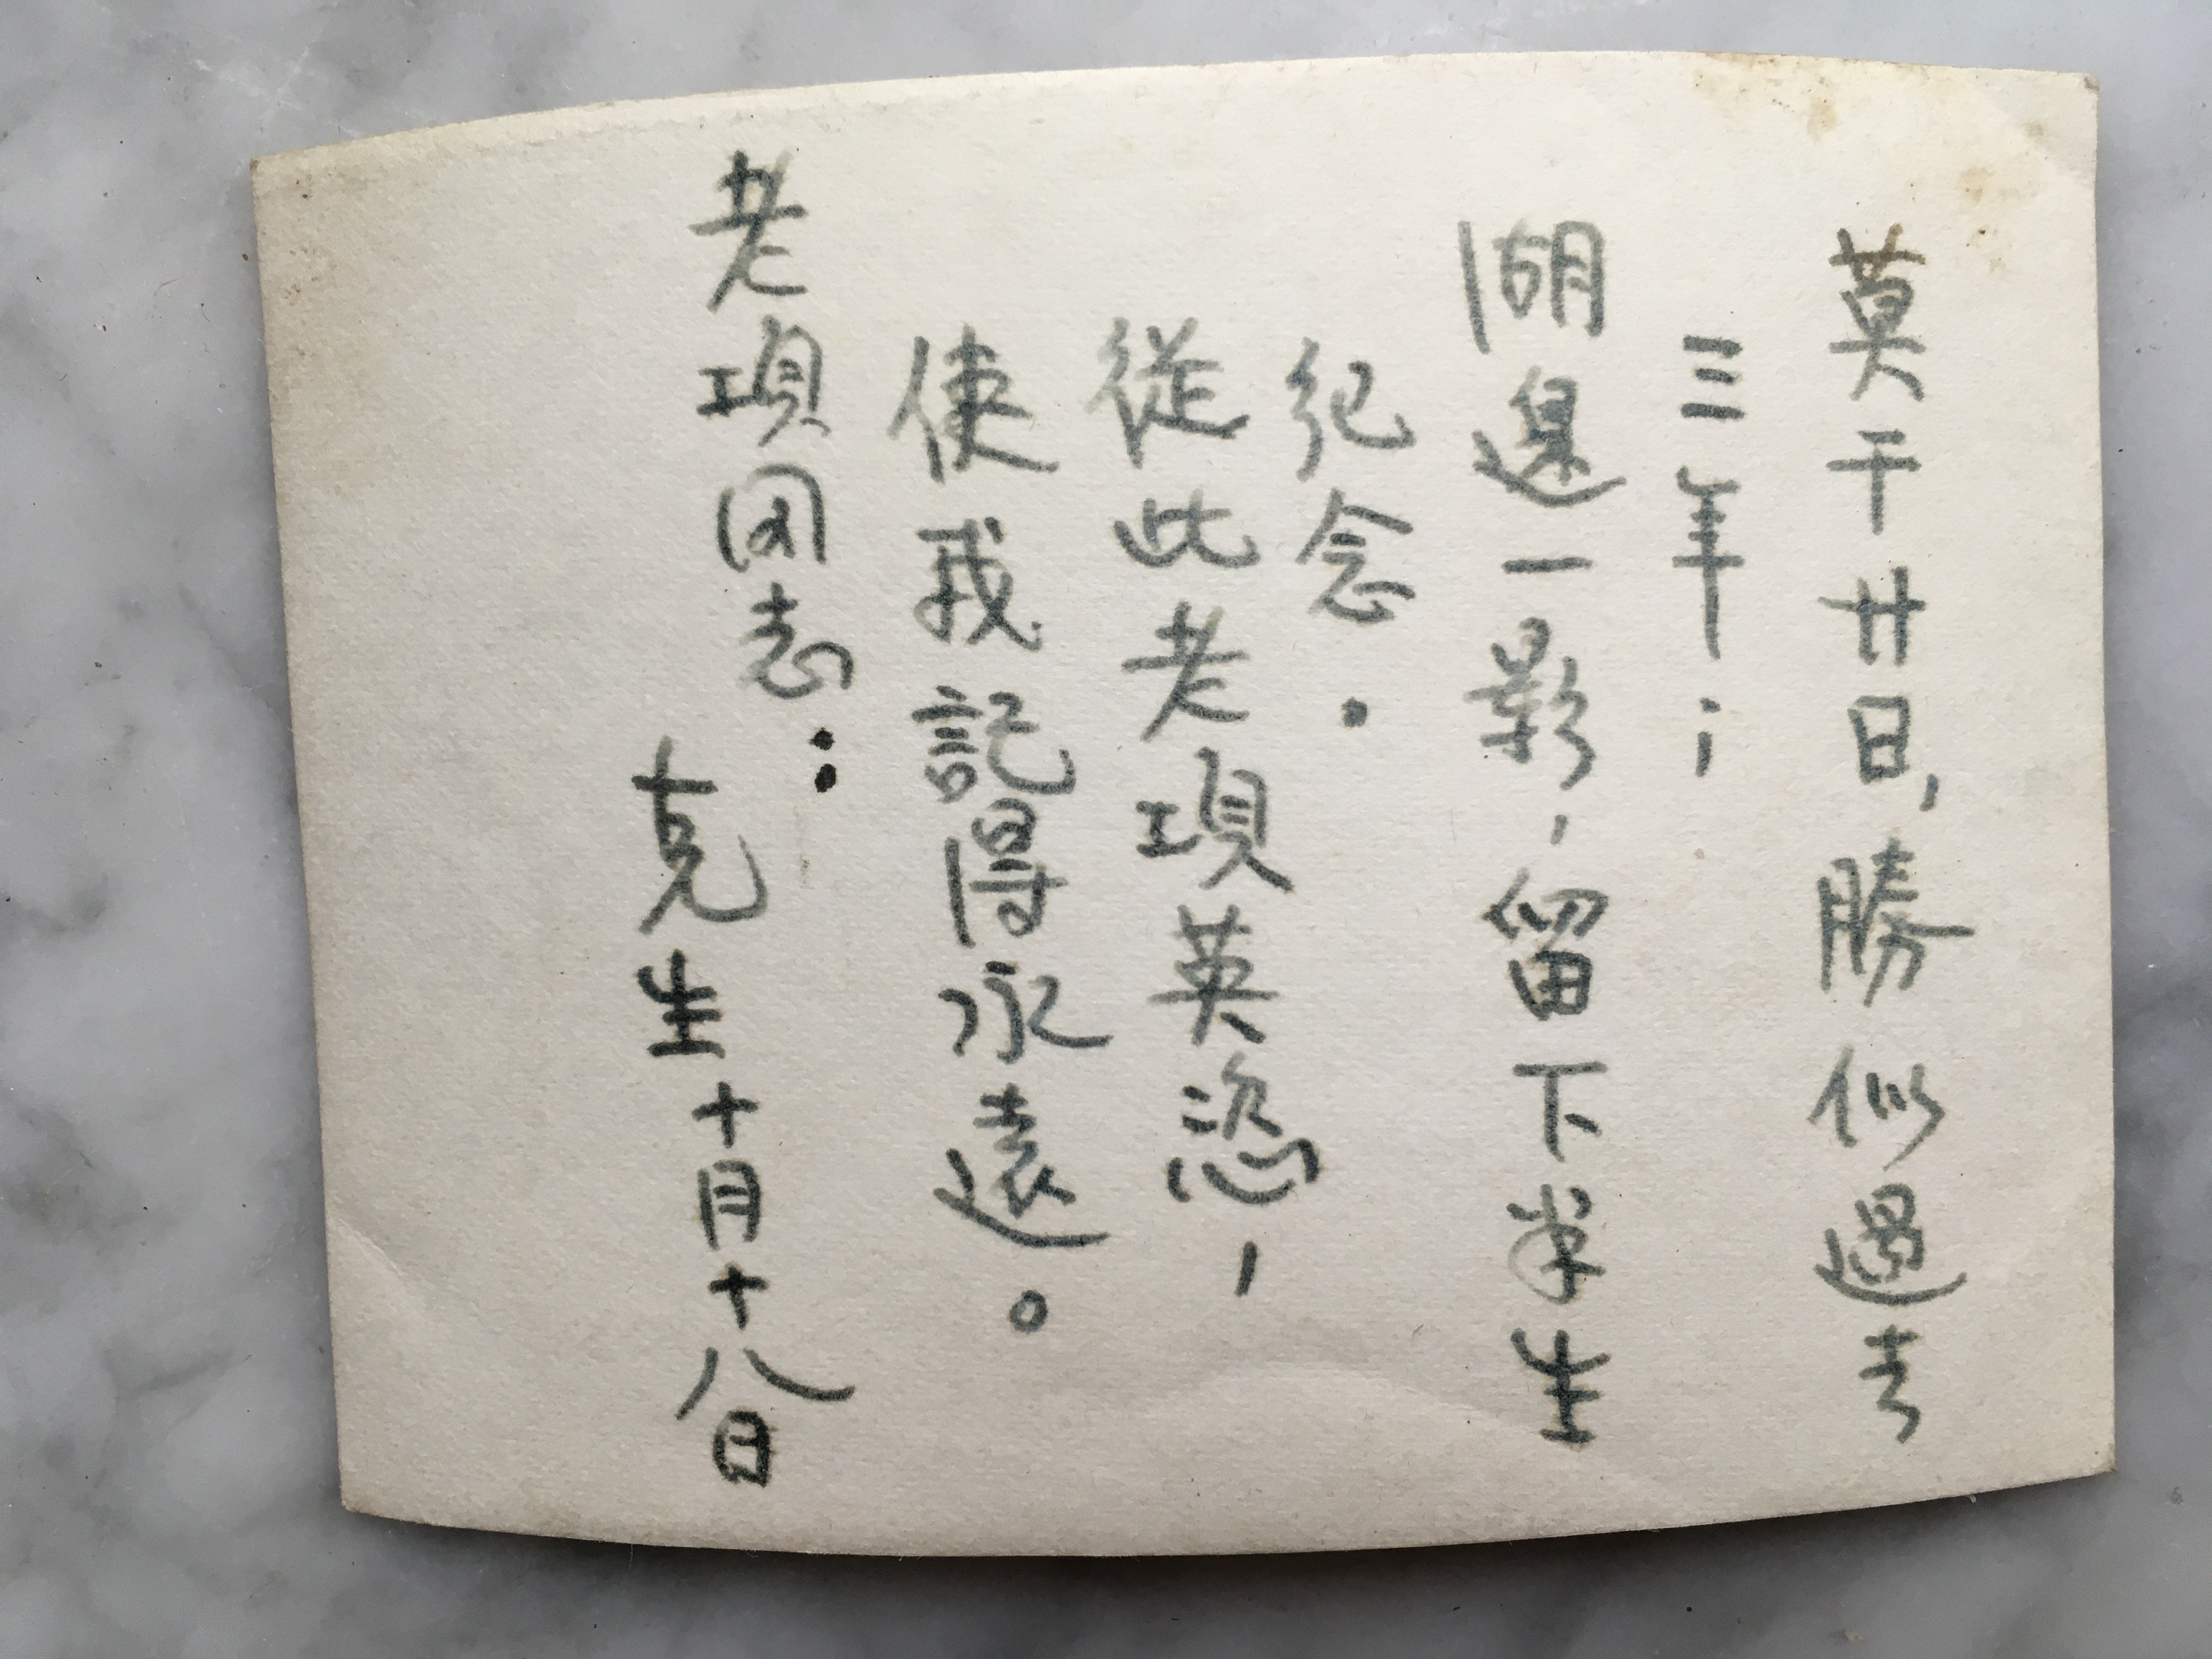 莫干廿日，勝似過去
三年；
湖邊一影，留下半生
紀念．
從此老項英恣，
使我記得永遠。
老項同志：
克生十月十八日